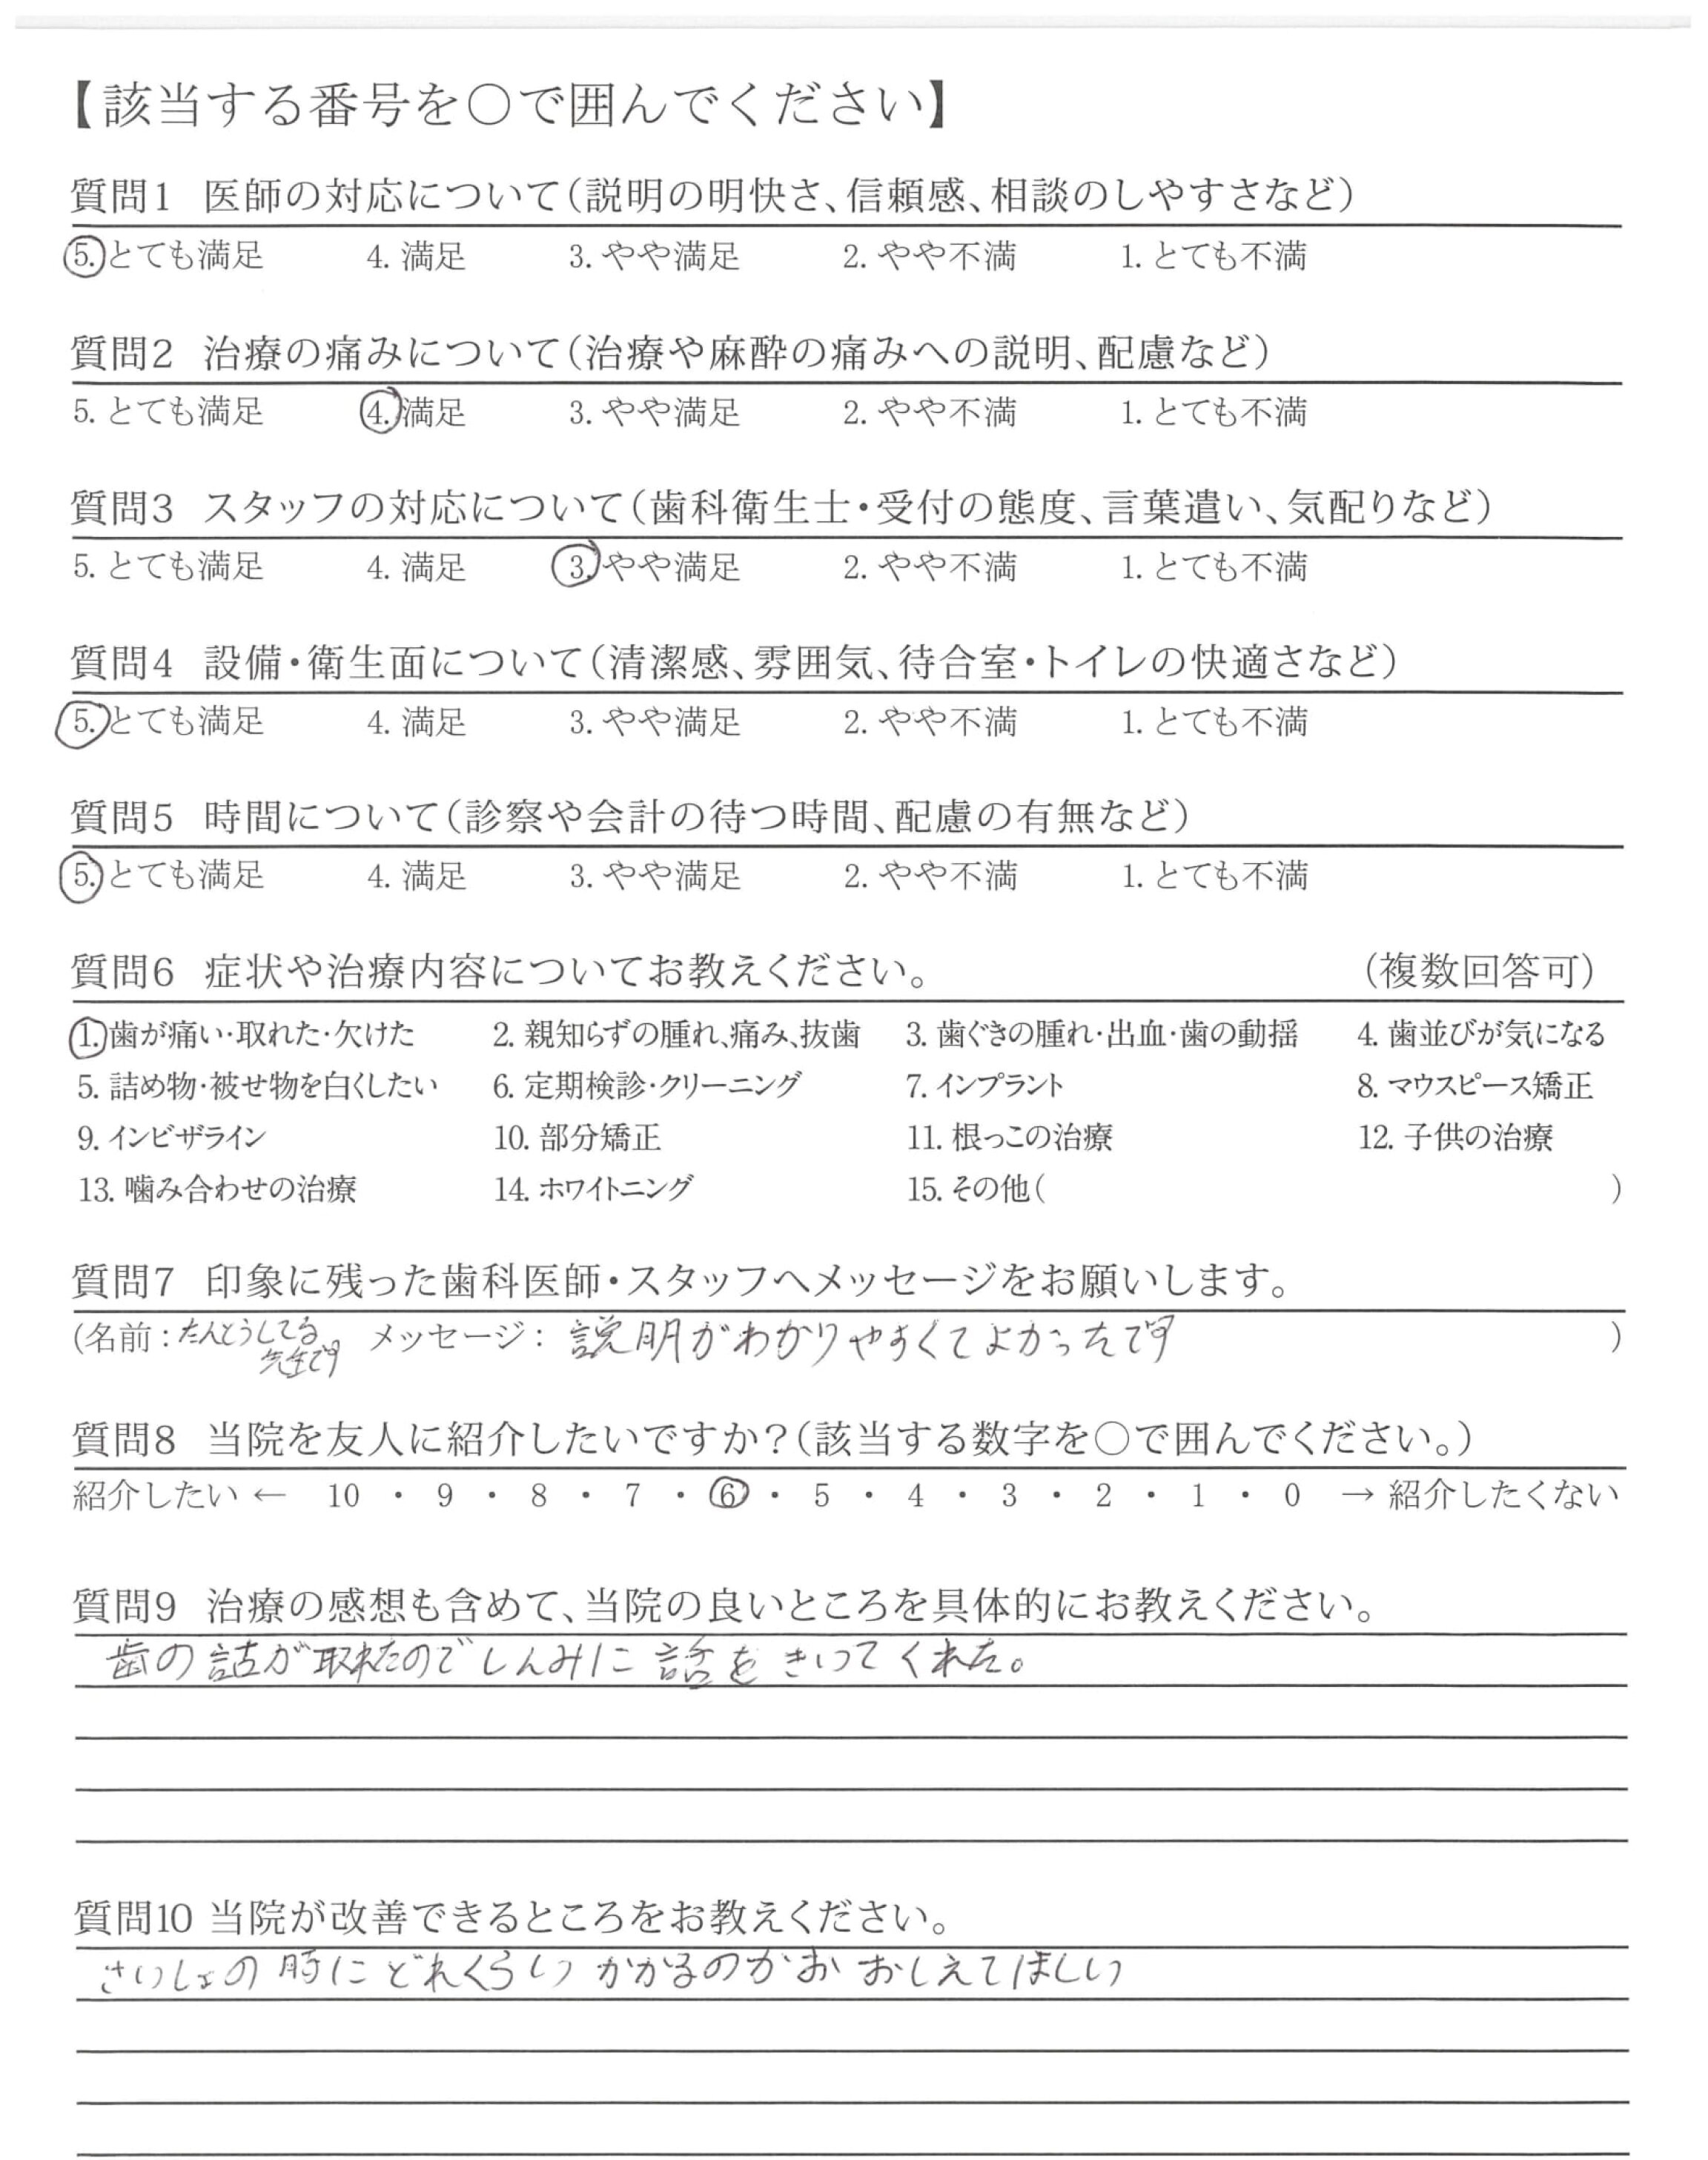 【該当する番号を○で囲んでください】
質問1 医師の対応について(説明の明快さ、信頼感、相談のしやすさなど)
5. とても満足 4. 満足 3. やや満足 2. やや不満 1. とても不満
質問2 治療の痛みについて(治療や麻酔の痛みへの説明、配慮など)
5. とても満足 4. 満足 3. やや満足 2. やや不満 1. とても不満
質問3 スタッフの対応について(歯科衛生士・受付の態度、言葉遣い、気配りなど)
5. とても満足 4. 満足 3. やや満足 2. やや不満 1. とても不満
質問4 設備・衛生面について(清潔感、雰囲気、待合室・トイレの快適さなど)
5. とても満足 4. 満足 3. やや満足 2. やや不満 1. とても不満
質問5 時間について(診察や会計の待つ時間、配慮の有無など)
5. とても満足 4. 満足 3. やや満足 2. やや不満 1. とても不満
質問6 症状や治療内容についてお教えください。 (複数回答可)
1. 歯が痛い・取れた・欠けた 2. 親知らずの腫れ、痛み、抜歯 3. 歯ぐきの腫れ・出血・歯の動揺 4. 歯並びが気になる
5. 詰め物・被せ物を白くしたい 6. 定期検診・クリーニング 7. インプラント 8. マウスピース矯正
9. インビザライン 10. 部分矯正 11. 根っこの治療 12. 子供の治療
13. 噛み合わせの治療 14. ホワイトニング 15. その他( )
質問7 印象に残った歯科医師・スタッフへメッセージをお願いします。
(名前：たんとうしてる 先生です メッセージ： 説明がわかりやすくてよかったです )
質問8 当院を友人に紹介したいですか？(該当する数字を○で囲んでください。)
紹介したい ← 10 ・ 9 ・ 8 ・ 7 ・ 6 ・ 5 ・ 4 ・ 3 ・ 2 ・ 1 ・ 0 → 紹介したくない
質問9 治療の感想も含めて、当院の良いところを具体的にお教えください。
歯の詰が取れたのでしんみに話をきいてくれた。
質問10 当院が改善できるところをお教えください。
さいしょの時にどれくらいかかるのかおおしえてほしい